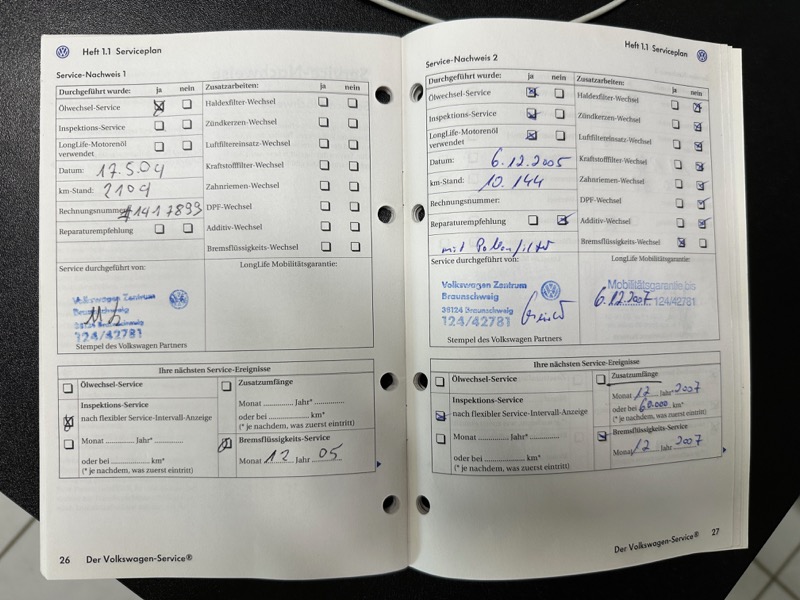 Heft 1.1 Serviceplan
Service-Nachweis 1
Durchgeführt wurde: ja nein
Ölwechsel-Service
Inspektions-Service
LongLife-Motorenöl
verwendet
Datum: 17.5.04
km-Stand: 2104
Rechnungsnummer: #1417899
Reparaturempfehlung
Zusatzarbeiten: ja nein
Haldexfilter-Wechsel
Zündkerzen-Wechsel
Luftfiltereinsatz-Wechsel
Kraftstofffilter-Wechsel
Zahnriemen-Wechsel
DPF-Wechsel
Additiv-Wechsel
Bremsflüssigkeits-Wechsel
Service durchgeführt von:
Volkswagen Zentrum
Braunschweig
38124 Braunschweig
124/42781
Stempel des Volkswagen Partners
LongLife Mobilitätsgarantie:
Ihre nächsten Service-Ereignisse
Ölwechsel-Service
Inspektions-Service
nach flexibler Service-Intervall-Anzeige
Monat ........... Jahr* ...............
oder bei ................ km*
(* je nachdem, was zuerst eintritt)
Zusatzumfänge
Monat ........... Jahr* ...............
oder bei ................ km*
(* je nachdem, was zuerst eintritt)
Bremsflüssigkeits-Service
Monat 12 Jahr 05
26 Der Volkswagen-Service®
Heft 1.1 Serviceplan
Service-Nachweis 2
Durchgeführt wurde: ja nein
Ölwechsel-Service
Inspektions-Service
LongLife-Motorenöl
verwendet
Datum: 6.12.2005
km-Stand: 10.144
Rechnungsnummer:
Reparaturempfehlung
mit Pollenfilter
Zusatzarbeiten: ja nein
Haldexfilter-Wechsel
Zündkerzen-Wechsel
Luftfiltereinsatz-Wechsel
Kraftstofffilter-Wechsel
Zahnriemen-Wechsel
DPF-Wechsel
Additiv-Wechsel
Bremsflüssigkeits-Wechsel
Service durchgeführt von:
Volkswagen Zentrum
Braunschweig
38124 Braunschweig
124/42781
Stempel des Volkswagen Partners
LongLife Mobilitätsgarantie:
Mobilitätsgarantie bis
6.12.2007 124/42781
Ihre nächsten Service-Ereignisse
Ölwechsel-Service
Inspektions-Service
nach flexibler Service-Intervall-Anzeige
Monat ........... Jahr* ...............
oder bei ................ km*
(* je nachdem, was zuerst eintritt)
Zusatzumfänge
Monat 12 Jahr 2007
oder bei 60.000 km*
(* je nachdem, was zuerst eintritt)
Bremsflüssigkeits-Service
Monat 12 Jahr 2007
Der Volkswagen-Service® 27